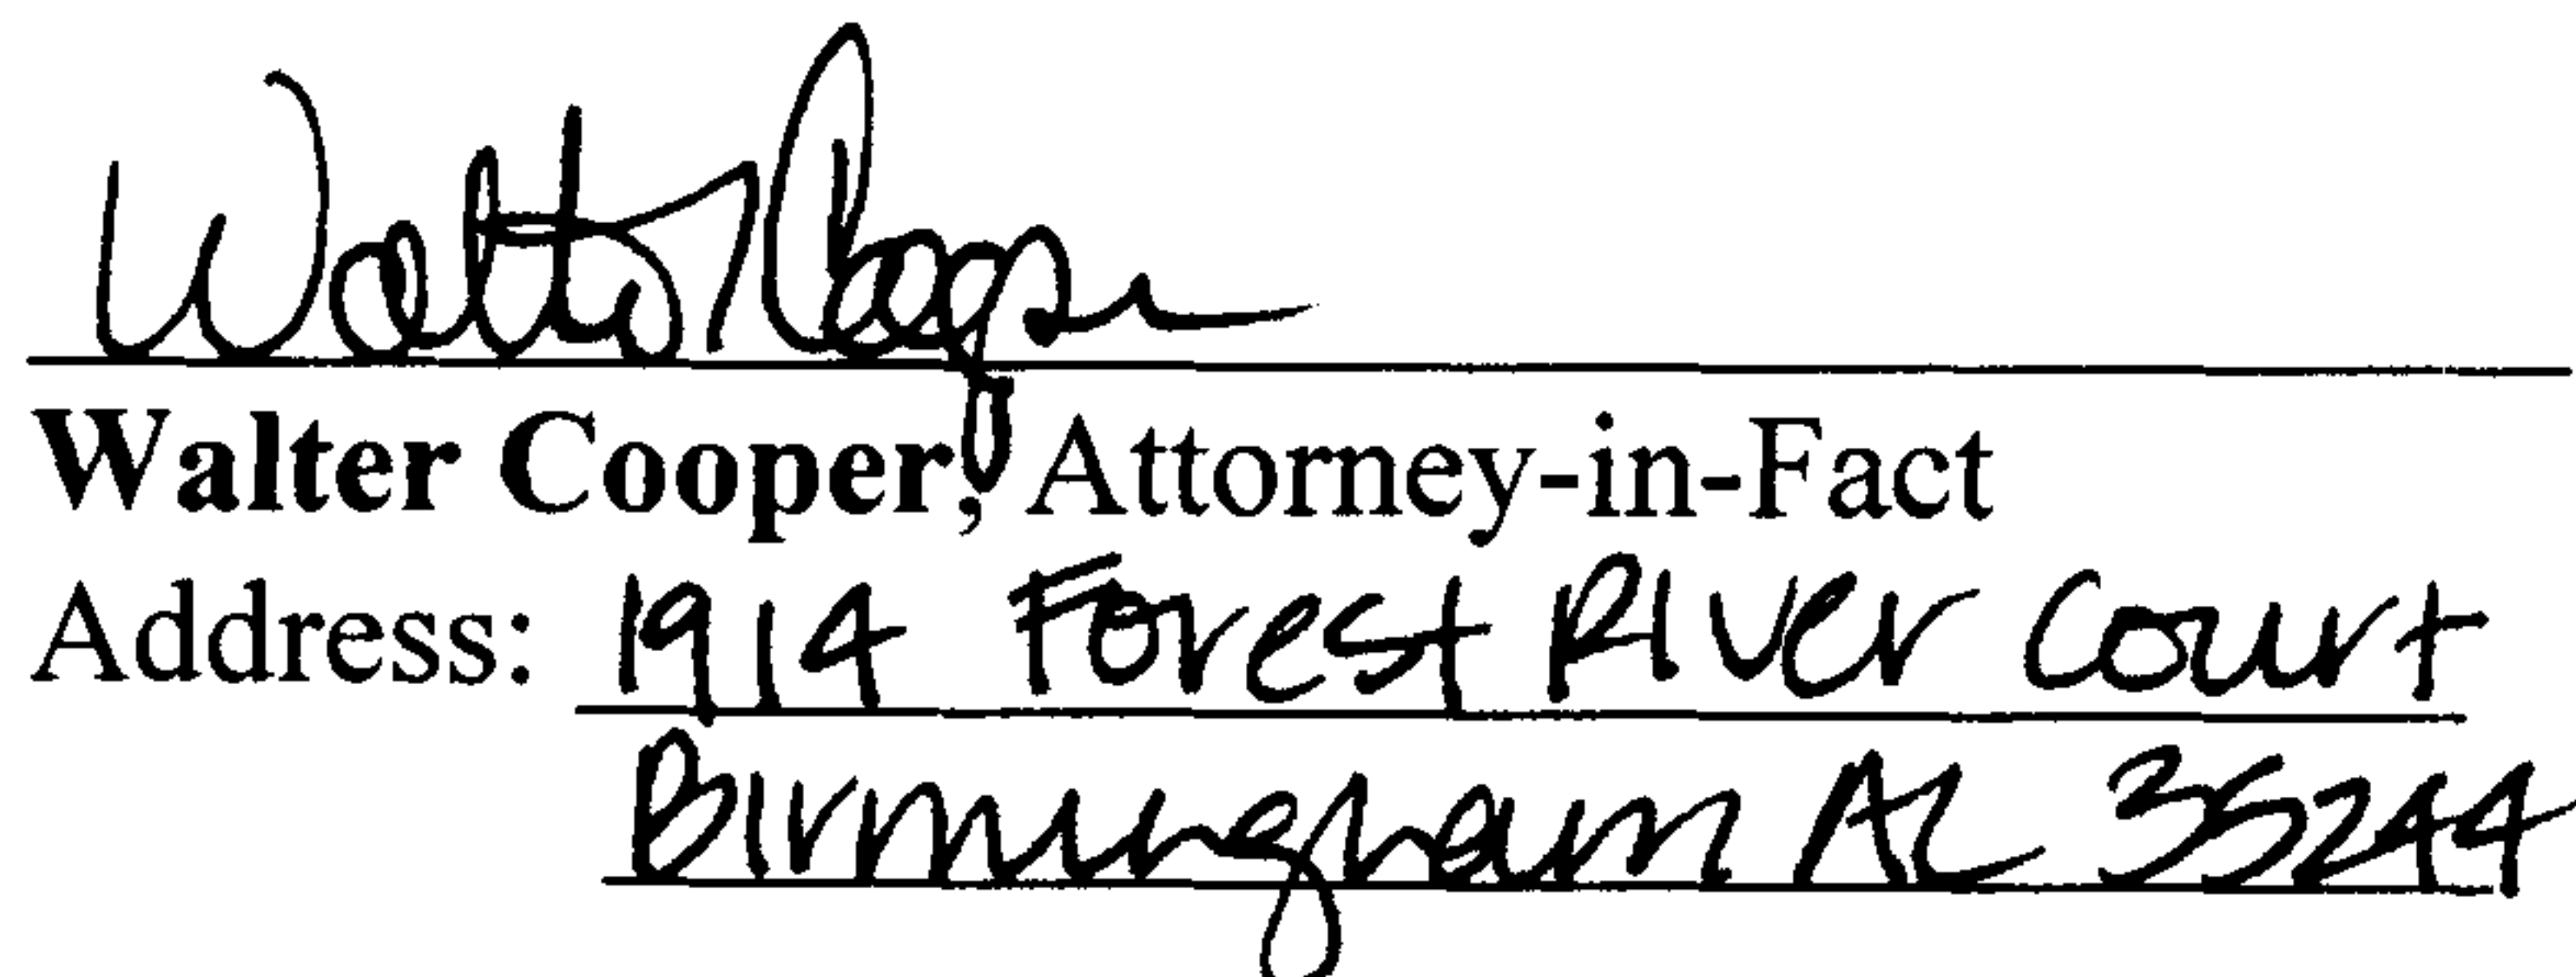 Walter Cooper
Walter Cooper, Attorney-in-Fact
Address: 1914 Forest River Court
Birmingham AL 35244